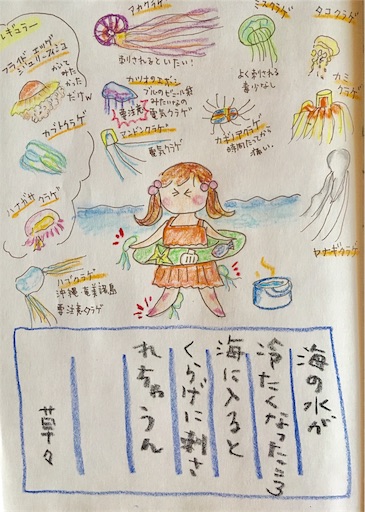 レギュラー
フライド エッグ
ジェリーフィッシュ
かいて
みた
かった
だけw
カブトクラゲ
ハナガサクラゲ
ハブクラゲ
沖縄・奄美諸島
要注意クラゲ
アカクラゲ
刺されるといたい!
カツオノエボシ
ブルーのビニール袋
みたいなの
要注意
電気クラゲ
アンドンクラゲ
電気クラゲ
ミズクラゲ
よく刺される
毒少なし
カギノテクラゲ
時間たってから
痛い
タコクラゲ
カミクラゲ
ヤナギクラゲ
海の水が
冷たくなったころ
海に入ると
くらげに刺さ
れちゃうん
草々